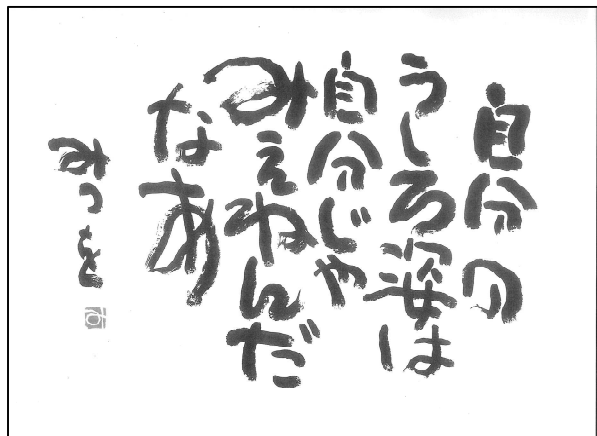 自分の
うしろ姿は
自分じゃ
みえねんだ
なあ
みつを